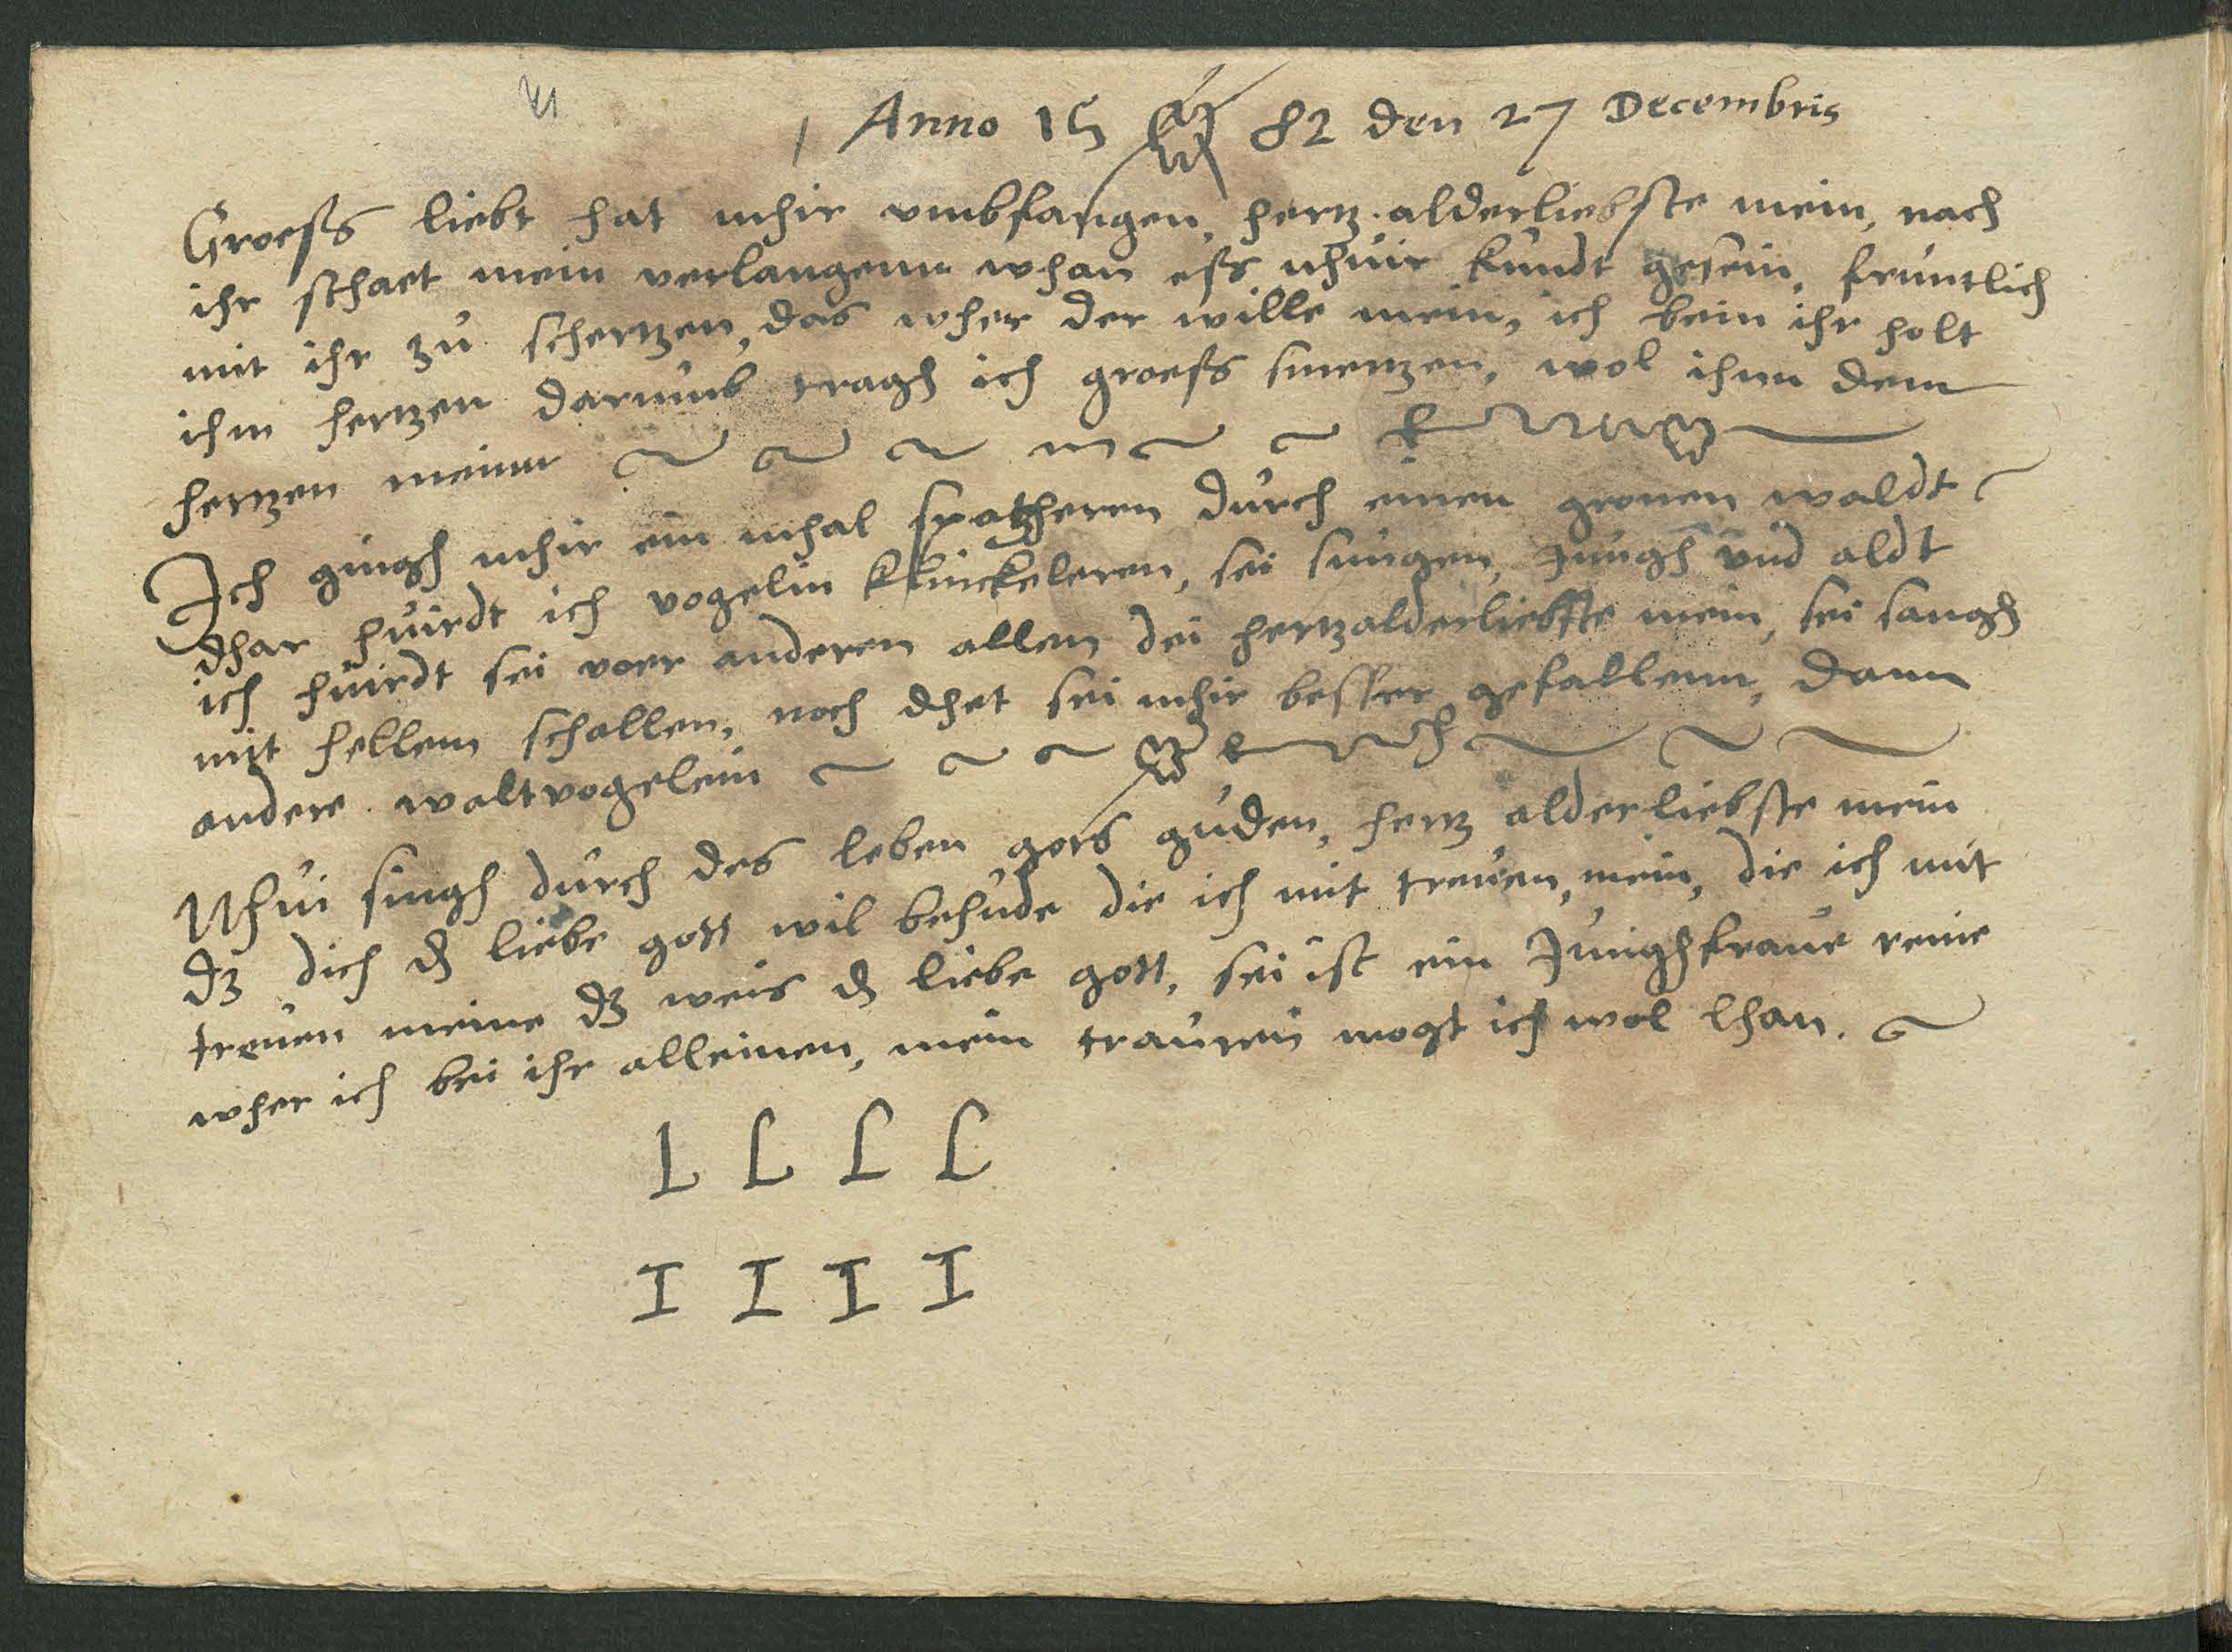 Anno 15 82 den 27 Decembris
Groeßs liebt hat mhir vmbfangen, hertz alderliebste mein, nach
ihr sthaet mein verlangenn whan eßs mhuir kundt gesein, fruntlich
mit ihr zu schertzen, das wher der wille mein, ich bein ihr holt
ihm hertzen darumb tragh ich groeßs smertzen, wol ihnn dem
hertzen meinn
Ich gingh mhir ein mhal spatzheren durch einen gronen waldt
dhar huirdt ich vogelin klinckeleren, sei sungen, Jungh vnd aldt
ich huirdt sei voer anderen allen dei hertzalderliebste mein, sei sangh
mit hellem schallen, noch dhet sei mhir besser gefallenn, dann
andere waltvogelein
Nhui singh durch des leben gots guden, hertz alderliebste mein
dz dich d liebe gott wil behude die ich mit treuen, mein, die ich mit
treuen meine dz weis d liebe gott, sei ist ein Junghfraue reine
wher ich bei ihr alleinen, mein trauren mogt ich wol lhan.
L L L L
I I I I